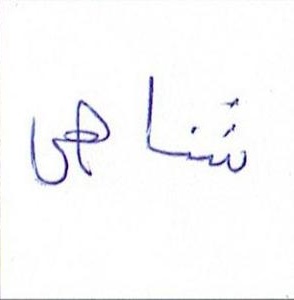 شناهی